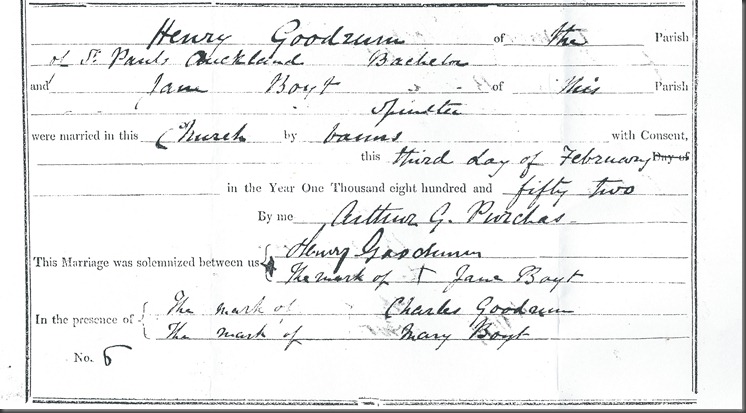 Henry Goodrum of the Parish
of St. Pauls Auckland Bachelor
and Jane Boyt of this Parish
Spinster
were married in this Church by banns with Consent,
this third day of February Day of
in the Year One Thousand eight hundred and fifty two
By me Arthur G. Purchas
This Marriage was solemnized between us { Henry Goodrum
The mark of + Jane Boyt
In the presence of { The mark of Charles Goodrum
The mark of Mary Boyt
No. 6